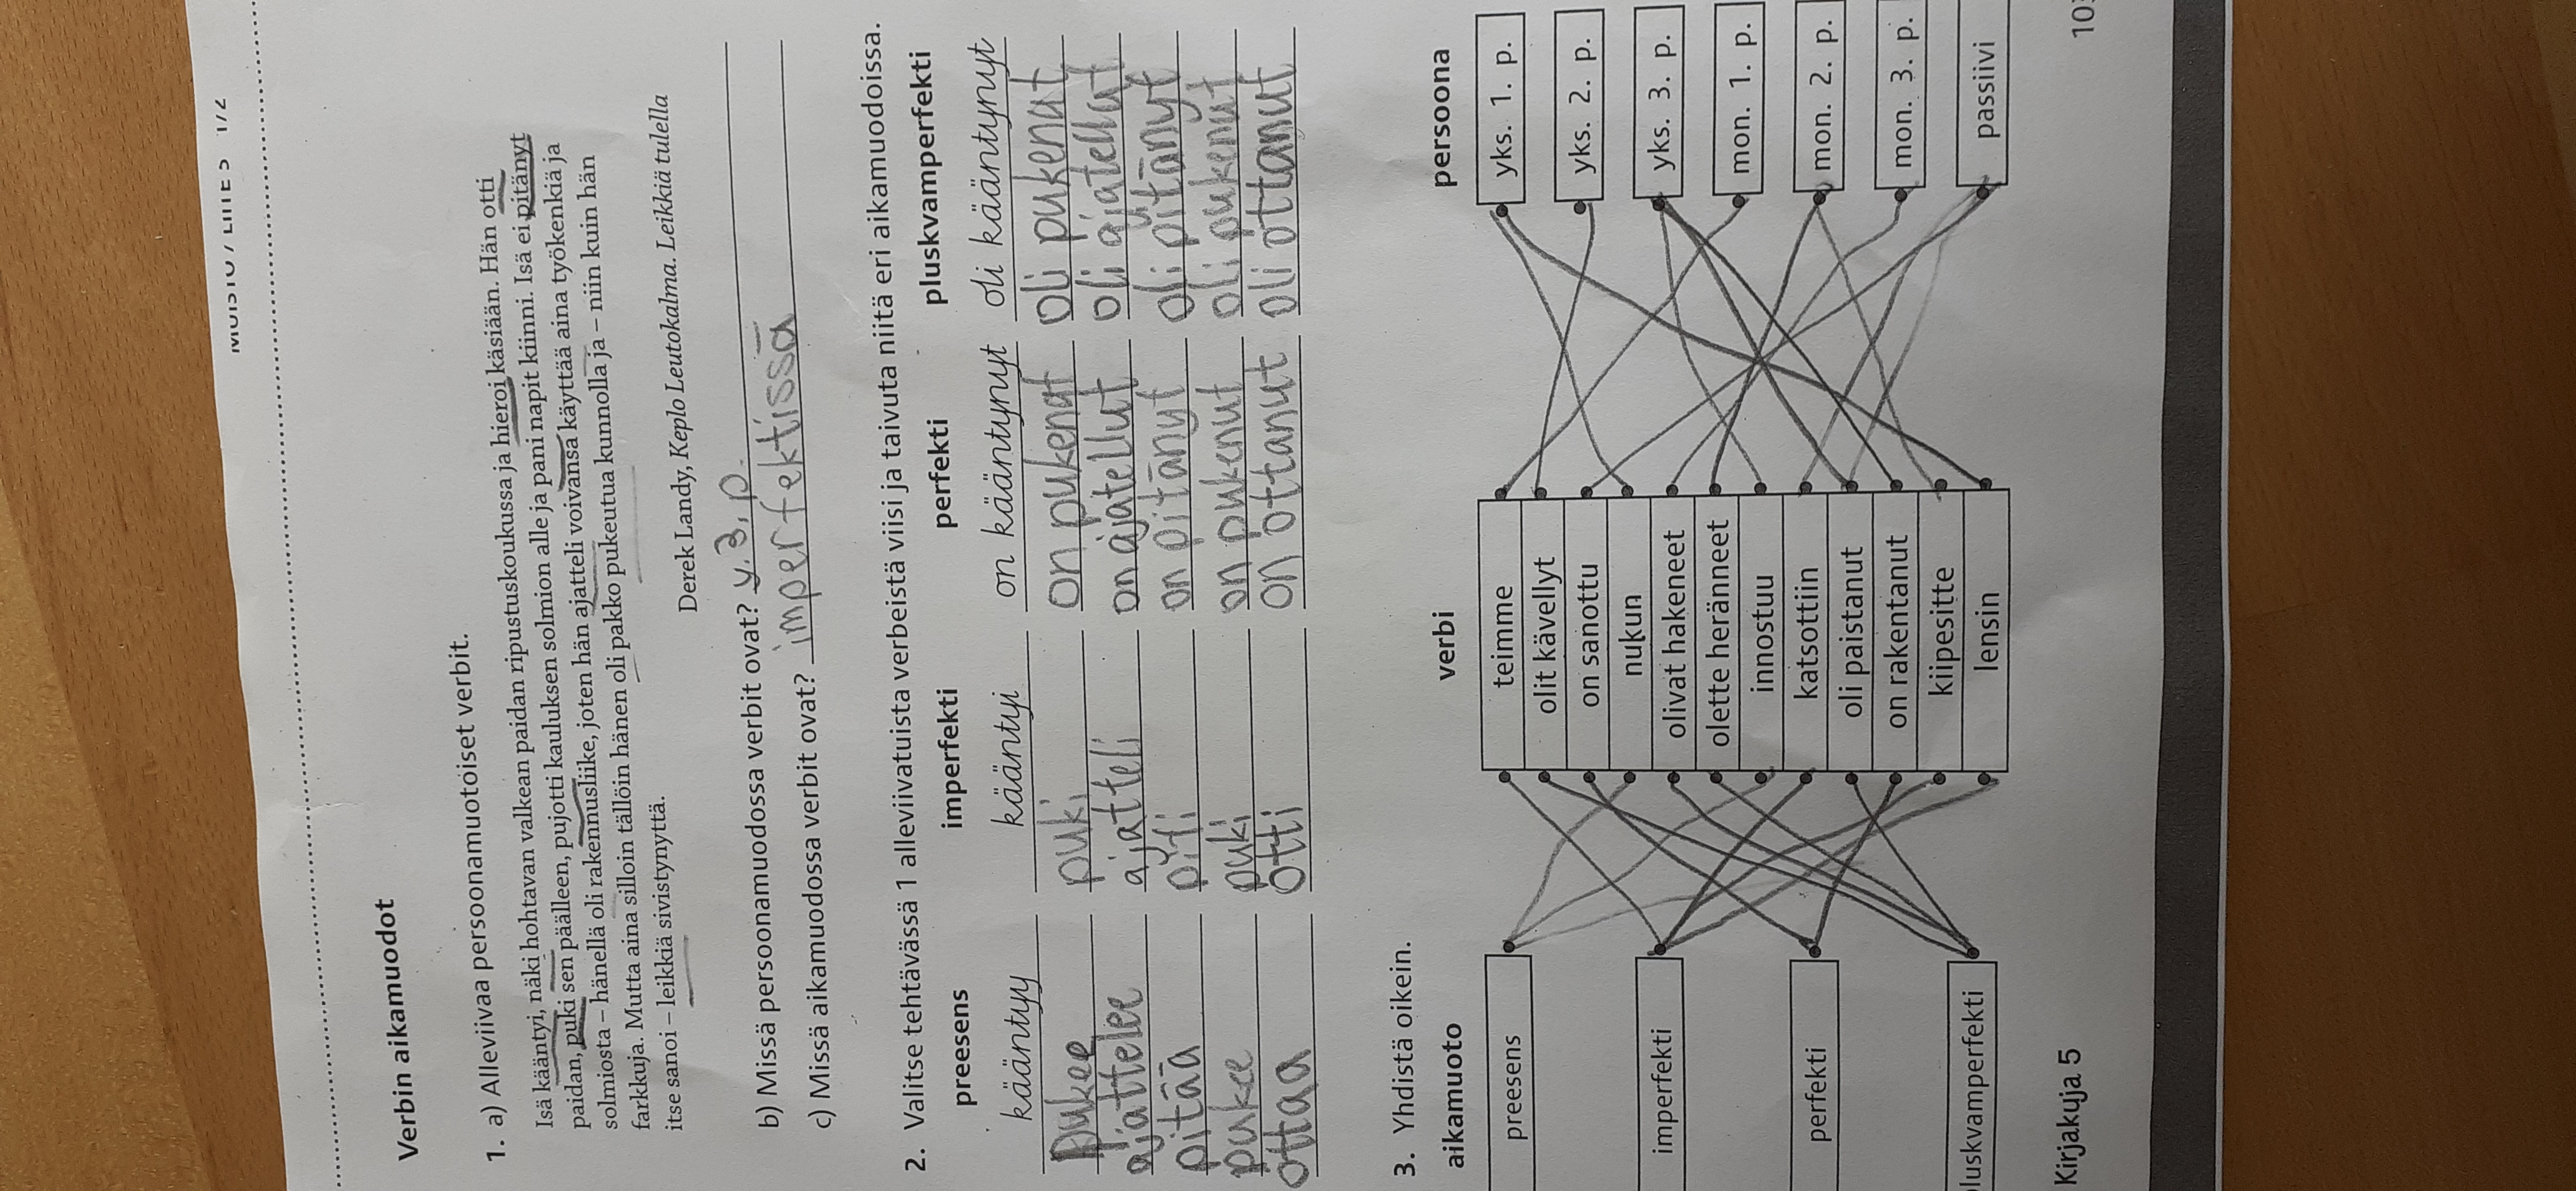 Verbin aikamuodot
1. a) Alleviivaa persoonamuotoiset verbit.
Isä kääntyi, näki hohtavan valkean paidan ripustuskoukussa ja hieroi käsiään. Hän otti
paidan, puki sen päälleen, pujotti kauluksen solmion alle ja pani napit kiinni. Isä ei pitänyt
solmiosta – hänellä oli rakennusliike, joten hän ajatteli voivansa käyttää aina työkenkiä ja
farkkuja. Mutta aina silloin tällöin hänen oli pakko pukeutua kunnolla ja – niin kuin hän
itse sanoi – leikkiä sivistynyttä.
Derek Landy, Keplo Leutokalma. Leikkiä tulella
b) Missä persoonamuodossa verbit ovat? y. 3. p.
c) Missä aikamuodossa verbit ovat? imperfektissä
2. Valitse tehtävässä 1 alleviivatuista verbeistä viisi ja taivuta niitä eri aikamuodoissa.
preesens imperfekti perfekti pluskvamperfekti
kääntyy kääntyi on kääntynyt oli kääntynyt
pukee puki on pukenut oli pukenut
ajattelee ajatteli on ajatellut oli ajatellut
pitää piti on pitänyt oli pitänyt
pukee puki on pukenut oli pukenut
ottaa otti on ottanut oli ottanut
3. Yhdistä oikein.
aikamuoto verbi persoona
preesens teimme yks. 1. p.
olit kävellyt yks. 2. p.
on sanottu
nukun yks. 3. p.
imperfekti olivat hakeneet
olette heränneet mon. 1. p.
innostuu
perfekti katsottiin mon. 2. p.
oli paistanut
on rakentanut mon. 3. p.
kiipesitte
luskvamperfekti lensin passiivi
Kirjakuja 5 103